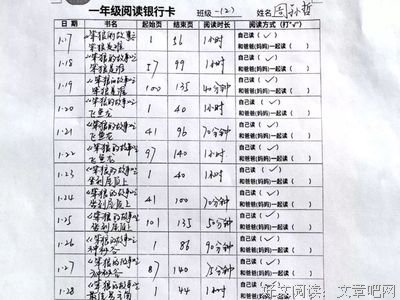 一年级阅读银行卡
班级 (2) 姓名 周孙哲
日期 书名 起始页 结束页 阅读时长 阅读方式(打"√")
1.17 《笨狼的故事》 1 56 1小时 自己读(√)
和爸爸(妈妈)一起读( )
1.18 《笨狼的故事》 57 99 1小时 自己读(√)
和爸爸(妈妈)一起读( )
1.19 《笨狼的故事》 100 135 40分钟 自己读(√)
和爸爸(妈妈)一起读( )
1.20 《笨狼的故事》 1 40 1小时 自己读(√)
和爸爸(妈妈)一起读( )
1.21 《笨狼的故事》 41 96 70分钟 自己读(√)
和爸爸(妈妈)一起读( )
1.22 《笨狼的故事》 97 140 1小时 自己读(√)
和爸爸(妈妈)一起读( )
1.23 《笨狼的故事》 1 40 1小时 自己读(√)
和爸爸(妈妈)一起读( )
1.24 《笨狼的故事》 41 100 70分钟 自己读(√)
和爸爸(妈妈)一起读( )
1.25 《笨狼的故事》 101 135 50分钟 自己读(√)
和爸爸(妈妈)一起读( )
1.26 《笨狼的故事》 1 86 90分钟 自己读(√)
和爸爸(妈妈)一起读( )
1.27 《笨狼的故事》 87 140 75分钟 自己读(√)
和爸爸(妈妈)一起读( )
1.28 《笨狼的故事》 1 44 1小时 自己读(√)
好文阅读:文章吧网